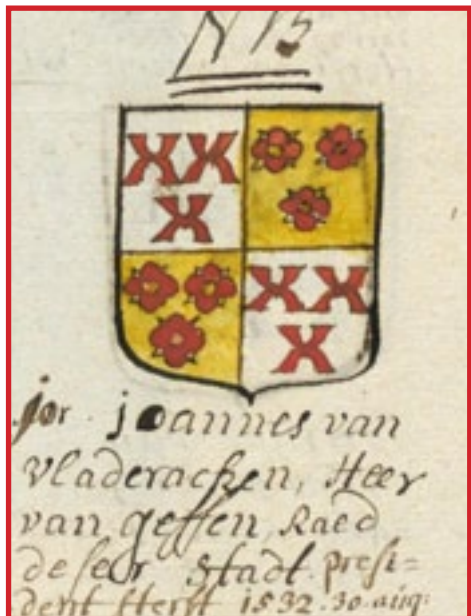 N 15
jor. joannes van
vladeracken, Heer
van geffen, Raed
deser stadt. presi=
dent sterft 1532. 30. aug: